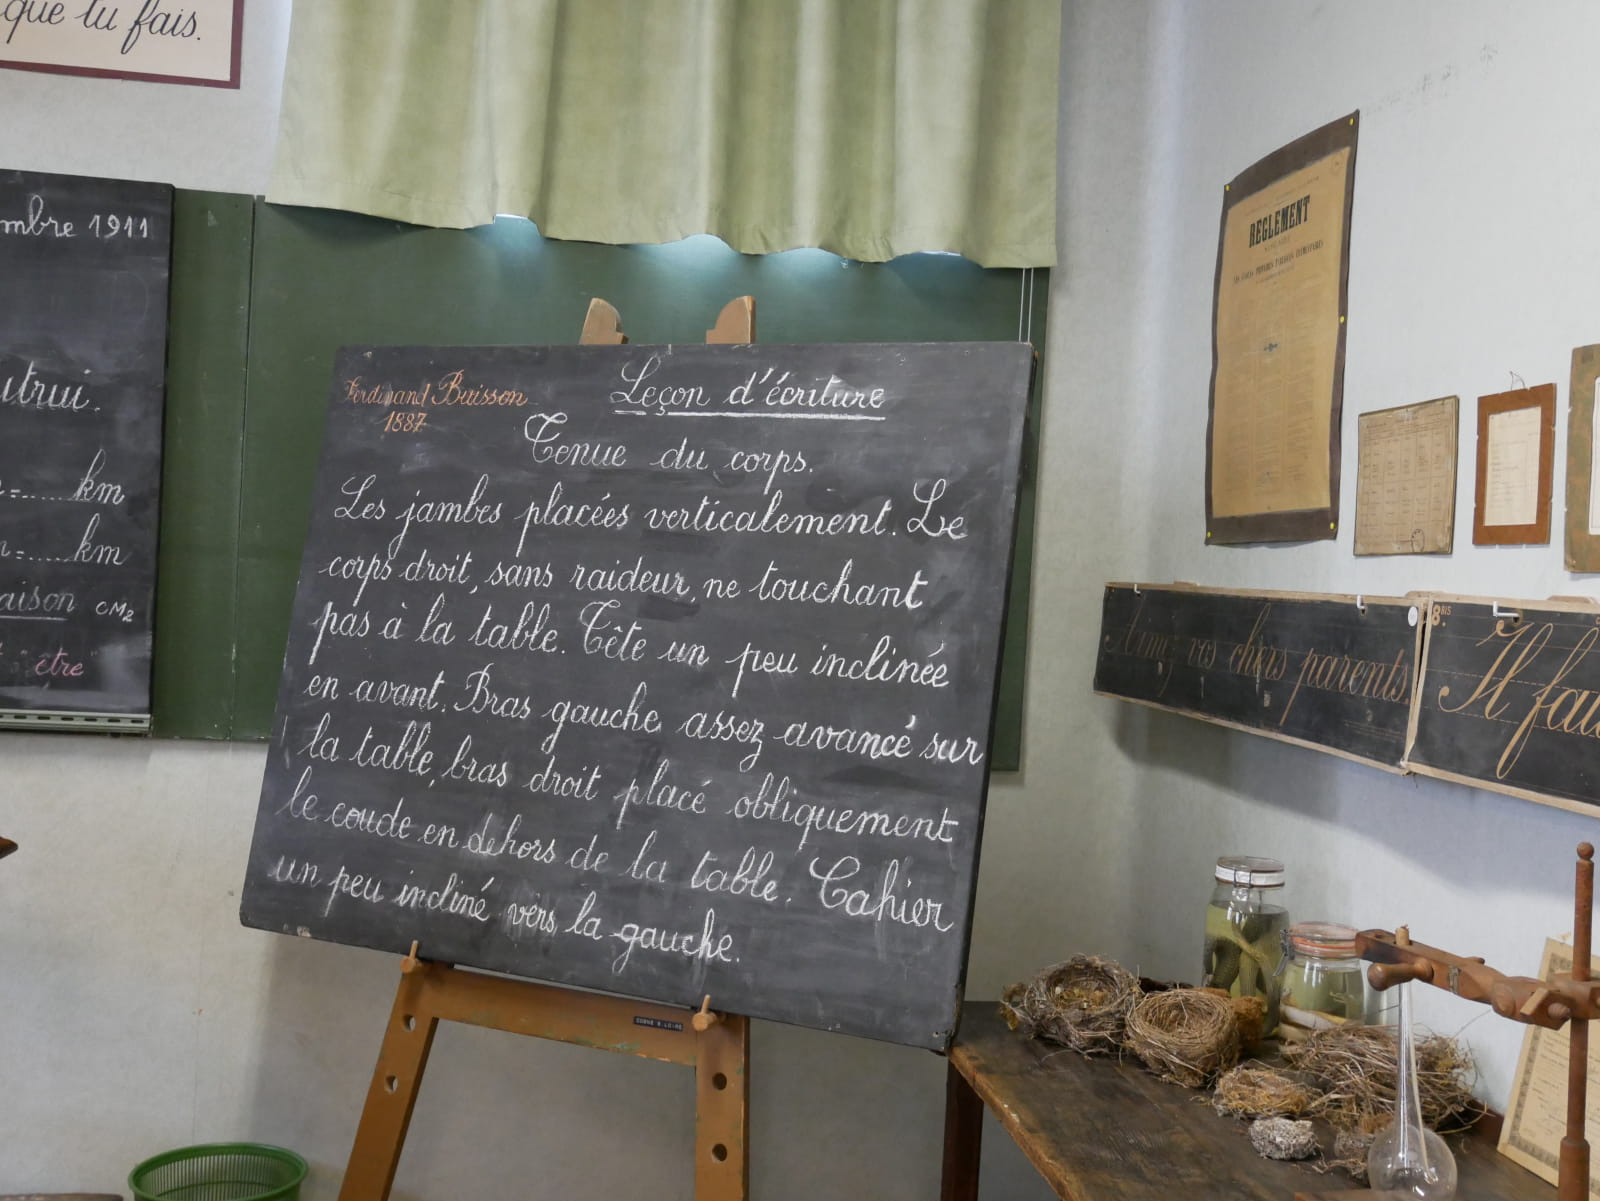 que tu fais.
mbre 1911
utrui.
=.....km
=.....km
aison cm2
"être"
Ferdinand Buisson
1887
Leçon d'écriture
Tenue du corps.
Les jambes placées verticalement. Le
corps droit, sans raideur, ne touchant
pas à la table. Tête un peu inclinée
en avant. Bras gauche assez avancé sur
la table, bras droit placé obliquement
le coude en dehors de la table. Cahier
un peu incliné vers la gauche.
REGLEMENT
Aimez vos chers parents.
8 BIS
Il fau